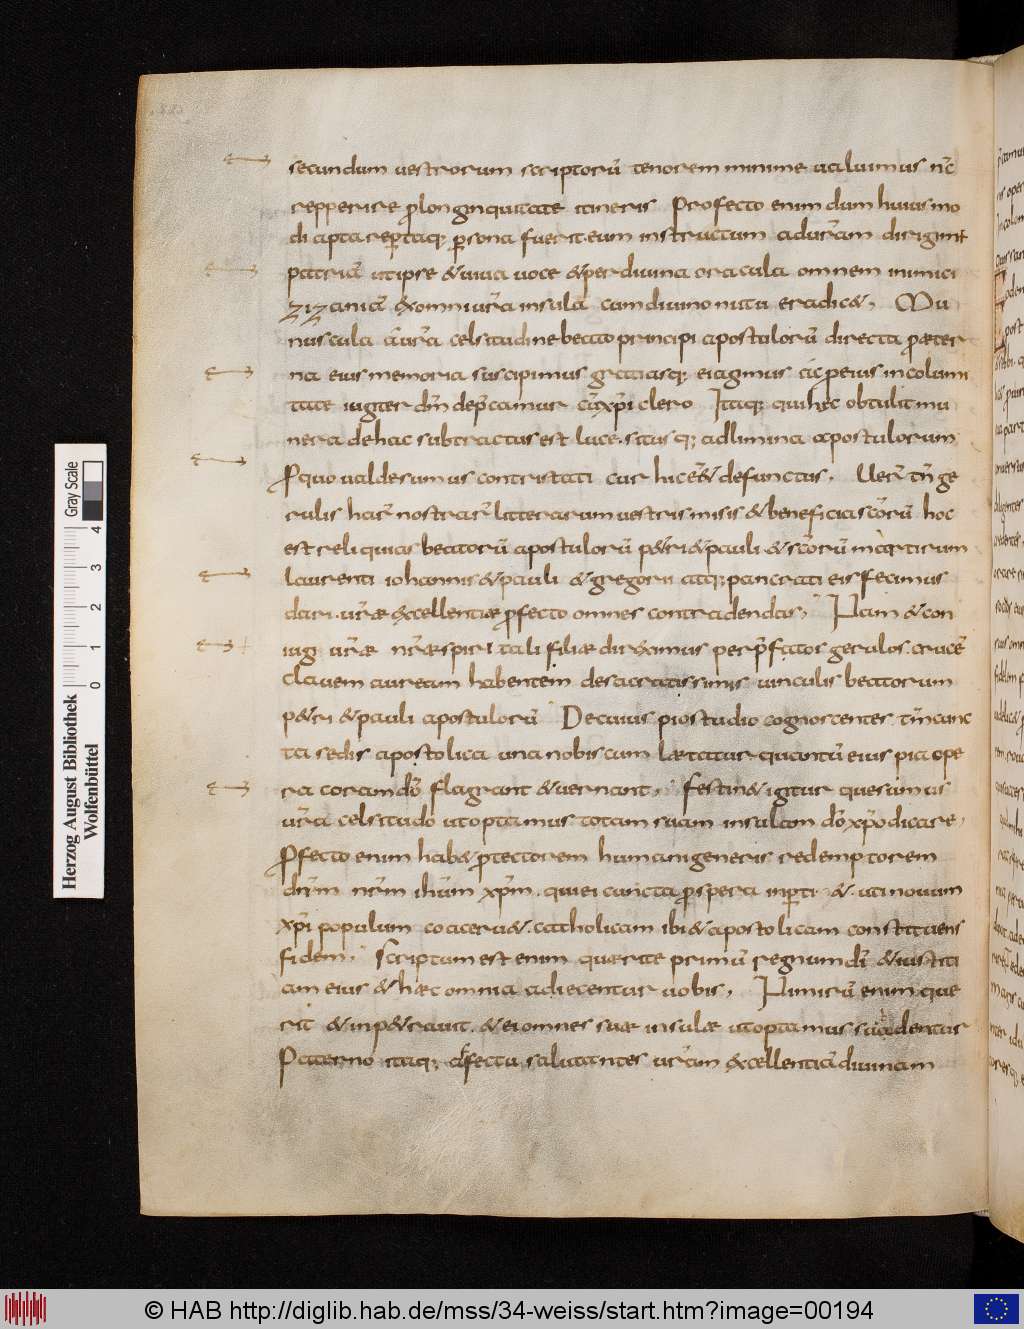 secundum uestrorum scriptorū tenorem minime ualuimus nc̄
repperire ꝓlonginquitate itineris Profecto enim dum huiusmo
di apta repertaq; ꝑsona fuerit. eum instructum adur̄am dirigimꝰ
patriā utipse &uiua uoce &perdiuina oracula omnem inimici
zizaniā &xomniur̄a insula cumdiuino nutu eradic&. Mu
nuscula aur̄a celsitudinebeato principi apostulorū directa ꝓ&ter
na eius memoria suscipimus gratiasq; eiagimus ac ꝓeius incolumi
tate iugiter dm̄ dep̄camur cūxp̄i clero Itaq; quihęc obtulit mu
nera dehac subtractus est luce. situs q; adlimina apostulorum
Pquo ualdesumus contristati cur hic e&̄ defunctus. Uerū tn̄ ge
rulis har̄ nostrar̄ litterarum uestris misis &beneficia sc̄orū hoc
est reliquias beatorū apostulorū p&ri&pauli &sc̄orū martirum
laurenti iohannis&pauli &gregorii atq; pancrati eis fecimus
dari. ur̄æ &xcellentiæ ꝓfecto omnes contradendas. Nam &con
iugi ur̄æ nr̄æspiri tali filiæ direximus perp̄fatos gerulos. crucē
clauem auream habentem desacratissimis uinculis beatorum
p&ri &pauli apostulorū Decuius piostudio cognoscentes tm̄cunc
ta sedis apostolica una nobiscum lætatur quantū eius pia ope
ra coramdō flagrant &uernant. festin& igitur quesumus
ur̄a celsitudo utoptamus totam suam insulam dōxp̄odicare.
Pfecto enim hab& ꝓtectorem humanigeneris redemptorem
dn̄m nr̄m ihūm xp̄m. quiei cuncta ꝓspera inꝑti& utinouum
xp̄i populum coaceru&. catholicam ibi&apostolicam constituens
fidem. Scriptum est enim querite primū regnum dī &iustiti
am eius &hæc omnia adiecentur uobis. Nimirū enim que
rit &inp&rauit. &eiomnes suæ insulæ utoptamus suādentur
Paterno itaq; affectu salutantes ur̄am &xcellentiā diuinam
Herzog August Bibliothek
Wolfenbüttel
Gray Scale
0 1 2 3 4
© HAB http://diglib.hab.de/mss/34-weiss/start.htm?image=00194